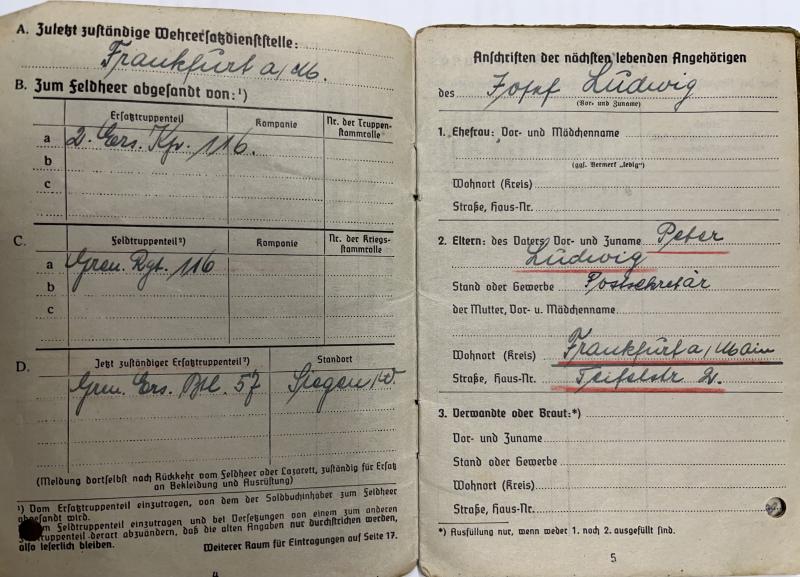 A. Zuletzt zuständige Wehrersatzdienststelle:
Frankfurt a/M.
B. Zum Feldheer abgesandt von:¹)
Ersatztruppenteil
Kompanie
Nr. der Truppen-
stammrolle
a 2. Ers. Kp. 116.
b
c
C. Feldtruppenteil²)
Kompanie
Nr. der Kriegs-
stammrolle
a Gren. Rgt. 116
b
c
D. Jetzt zuständiger Ersatztruppenteil²)
Standort
Gren. Ers. Btl. 57 Siegen/W.
(Meldung dortselbst nach Rückkehr vom Feldheer oder Lazarett, zuständig für Ersatz
an Bekleidung und Ausrüstung)
¹) Vom Ersatztruppenteil einzutragen, von dem der Soldbuchinhaber zum Feldheer
abgesandt wird.
Feldtruppenteil einzutragen und bei Versetzungen von einem zum anderen
derart abzuändern, daß die alten Angaben nur durchstrichen werden,
also leserlich bleiben.
Weiterer Raum für Eintragungen auf Seite 17.
4
Anschriften der nächsten lebenden Angehörigen
des Josef Ludwig
(Vor- und Zuname)
1. Ehefrau: Vor- und Mädchenname
(ggf. Vermerk „ledig“)
Wohnort (Kreis)
Straße, Haus-Nr.
2. Eltern: des Vaters, Vor- und Zuname Peter
Ludwig
Stand oder Gewerbe Postsekretär
der Mutter, Vor- u. Mädchenname
Wohnort (Kreis) Frankfurt a/Main
Straße, Haus-Nr. 2.
3. Verwandte oder Braut:*)
Vor- und Zuname
Stand oder Gewerbe
Wohnort (Kreis)
Straße, Haus-Nr.
*) Ausfüllung nur, wenn weder 1. noch 2. ausgefüllt sind.
5